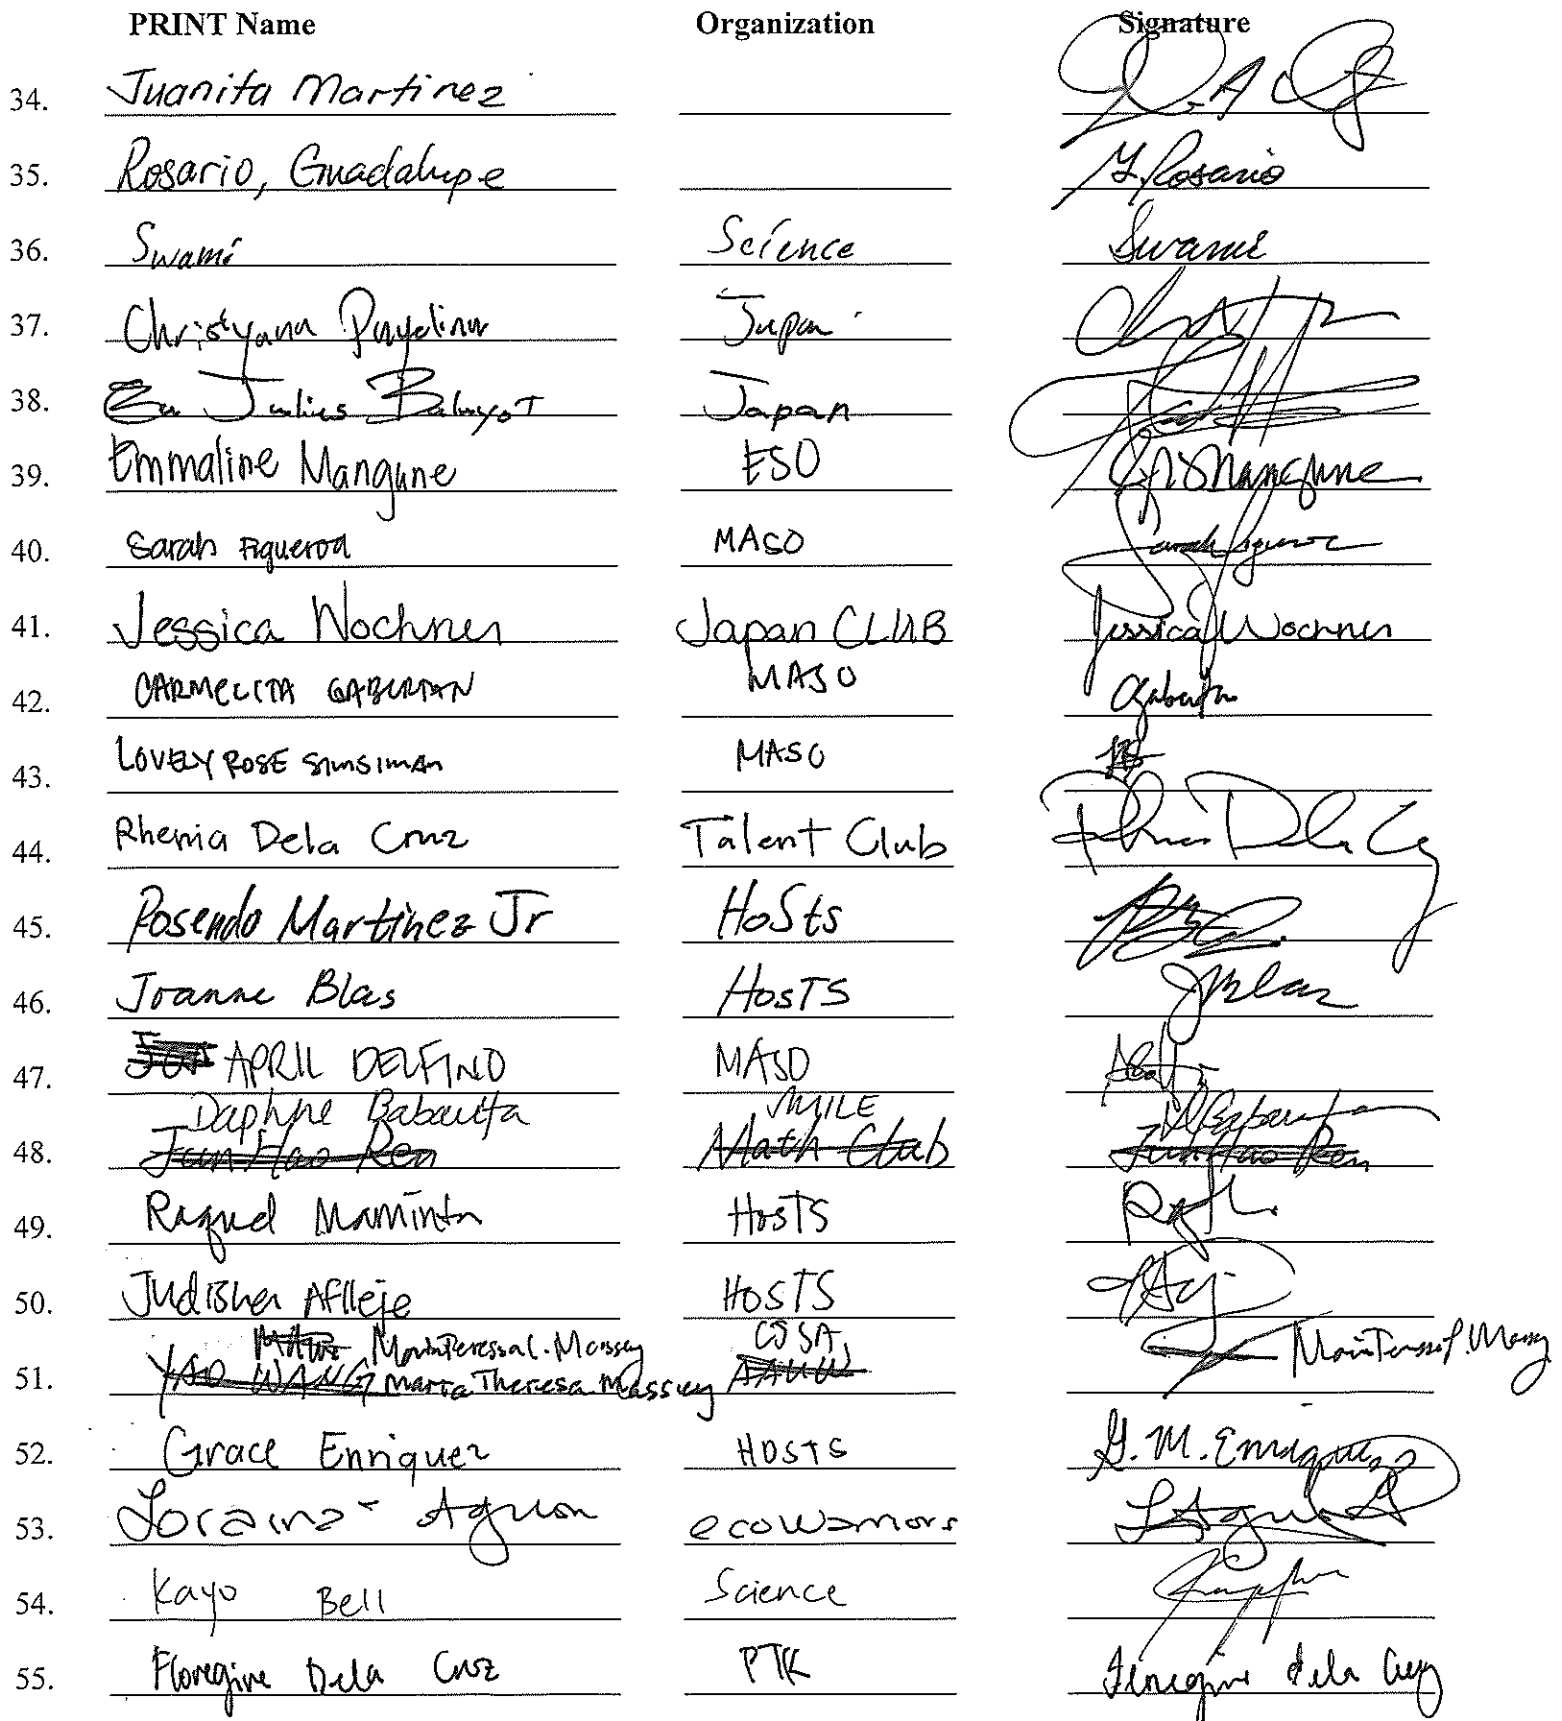 PRINT Name Organization Signature
34. Juanita Martinez
35. Rosario, Guadalupe G. Rosario
36. Swami Science Swami
37. Christyana Japan
38. Julius Baluyot Japan
39. Emmaline Mangune ESO Mangune
40. Sarah Figueroa MASO Sarah Figueroa
41. Jessica Wochner Japan CLUB Jessica Wochner
42. CARMELITA GABURTAN MASO
43. LOVELY ROSE SIMSIMAN MASO
44. Rhenia Dela Cruz Talent Club Dela Cruz
45. Rosendo Martinez Jr HoSts
46. Joanne Blas HosTS JBlas
47. APRIL DELFINO MASO
Daphne Babauta SMILE DBabauta
48. Jun Hao Ren Math Club Jun Hao Ren
49. Raquel Maminta HosTS
50. Judisha Aflleje HosTS
Massey CJSA
51. YAO WANG Maria Theresa Massey AAUW
52. Grace Enriquez HOSTS G. M. Enriquez
53. Loraine Aguon ecowarriors
54. Kayo Bell Science
55. Floregine Dela Cruz PTK Floregine dela Cruz